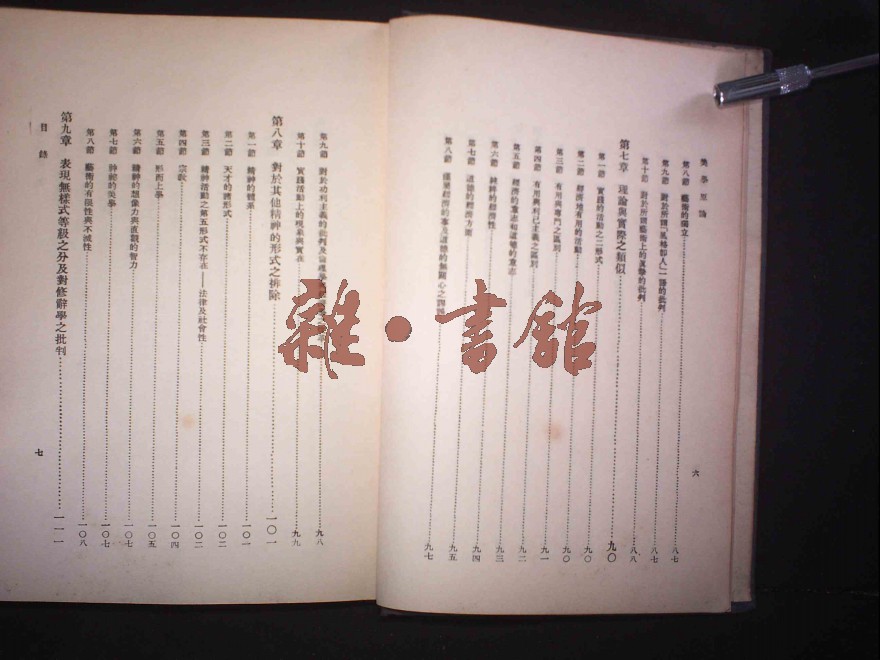 美學原論
第八節 藝術的獨立……八七
第九節 對於所謂「風格卽人」一語的批判……八七
第十節 對於所謂藝術上的眞摯的批判……八八
第七章 理論與實際之類似……九〇
第一節 實踐的活動之二形式……九〇
第二節 經濟地有用的活動……九〇
第三節 有用與專門之區別……九〇
第四節 有用與利己主義之區別……九一
第五節 經濟的意志和道德的意志……九二
第六節 純粹的經濟性……九三
第七節 道德的經濟方面……九四
第八節 僅是經濟的事及道德的無關心之……九五
六
第九節 對於功利主義的批判及倫理學……九八
第十節 實踐活動上的現象與實在……九九
第八章 對於其他精神的形式之排除……一〇一
第一節 精神的體系……一〇一
第二節 天才的諸形式……一〇二
第三節 精神活動之第五形式不存在——法律及社會性……一〇二
第四節 宗敎……一〇四
第五節 形而上學……一〇五
第六節 精神的想像力與直觀的智力……一〇七
第七節 神祕的美學……一〇七
第八節 藝術的有限性與不滅性……一〇八
第九章 表現無樣式等級之分及對修辭學之批判……一一一
目錄
七
雜·書館